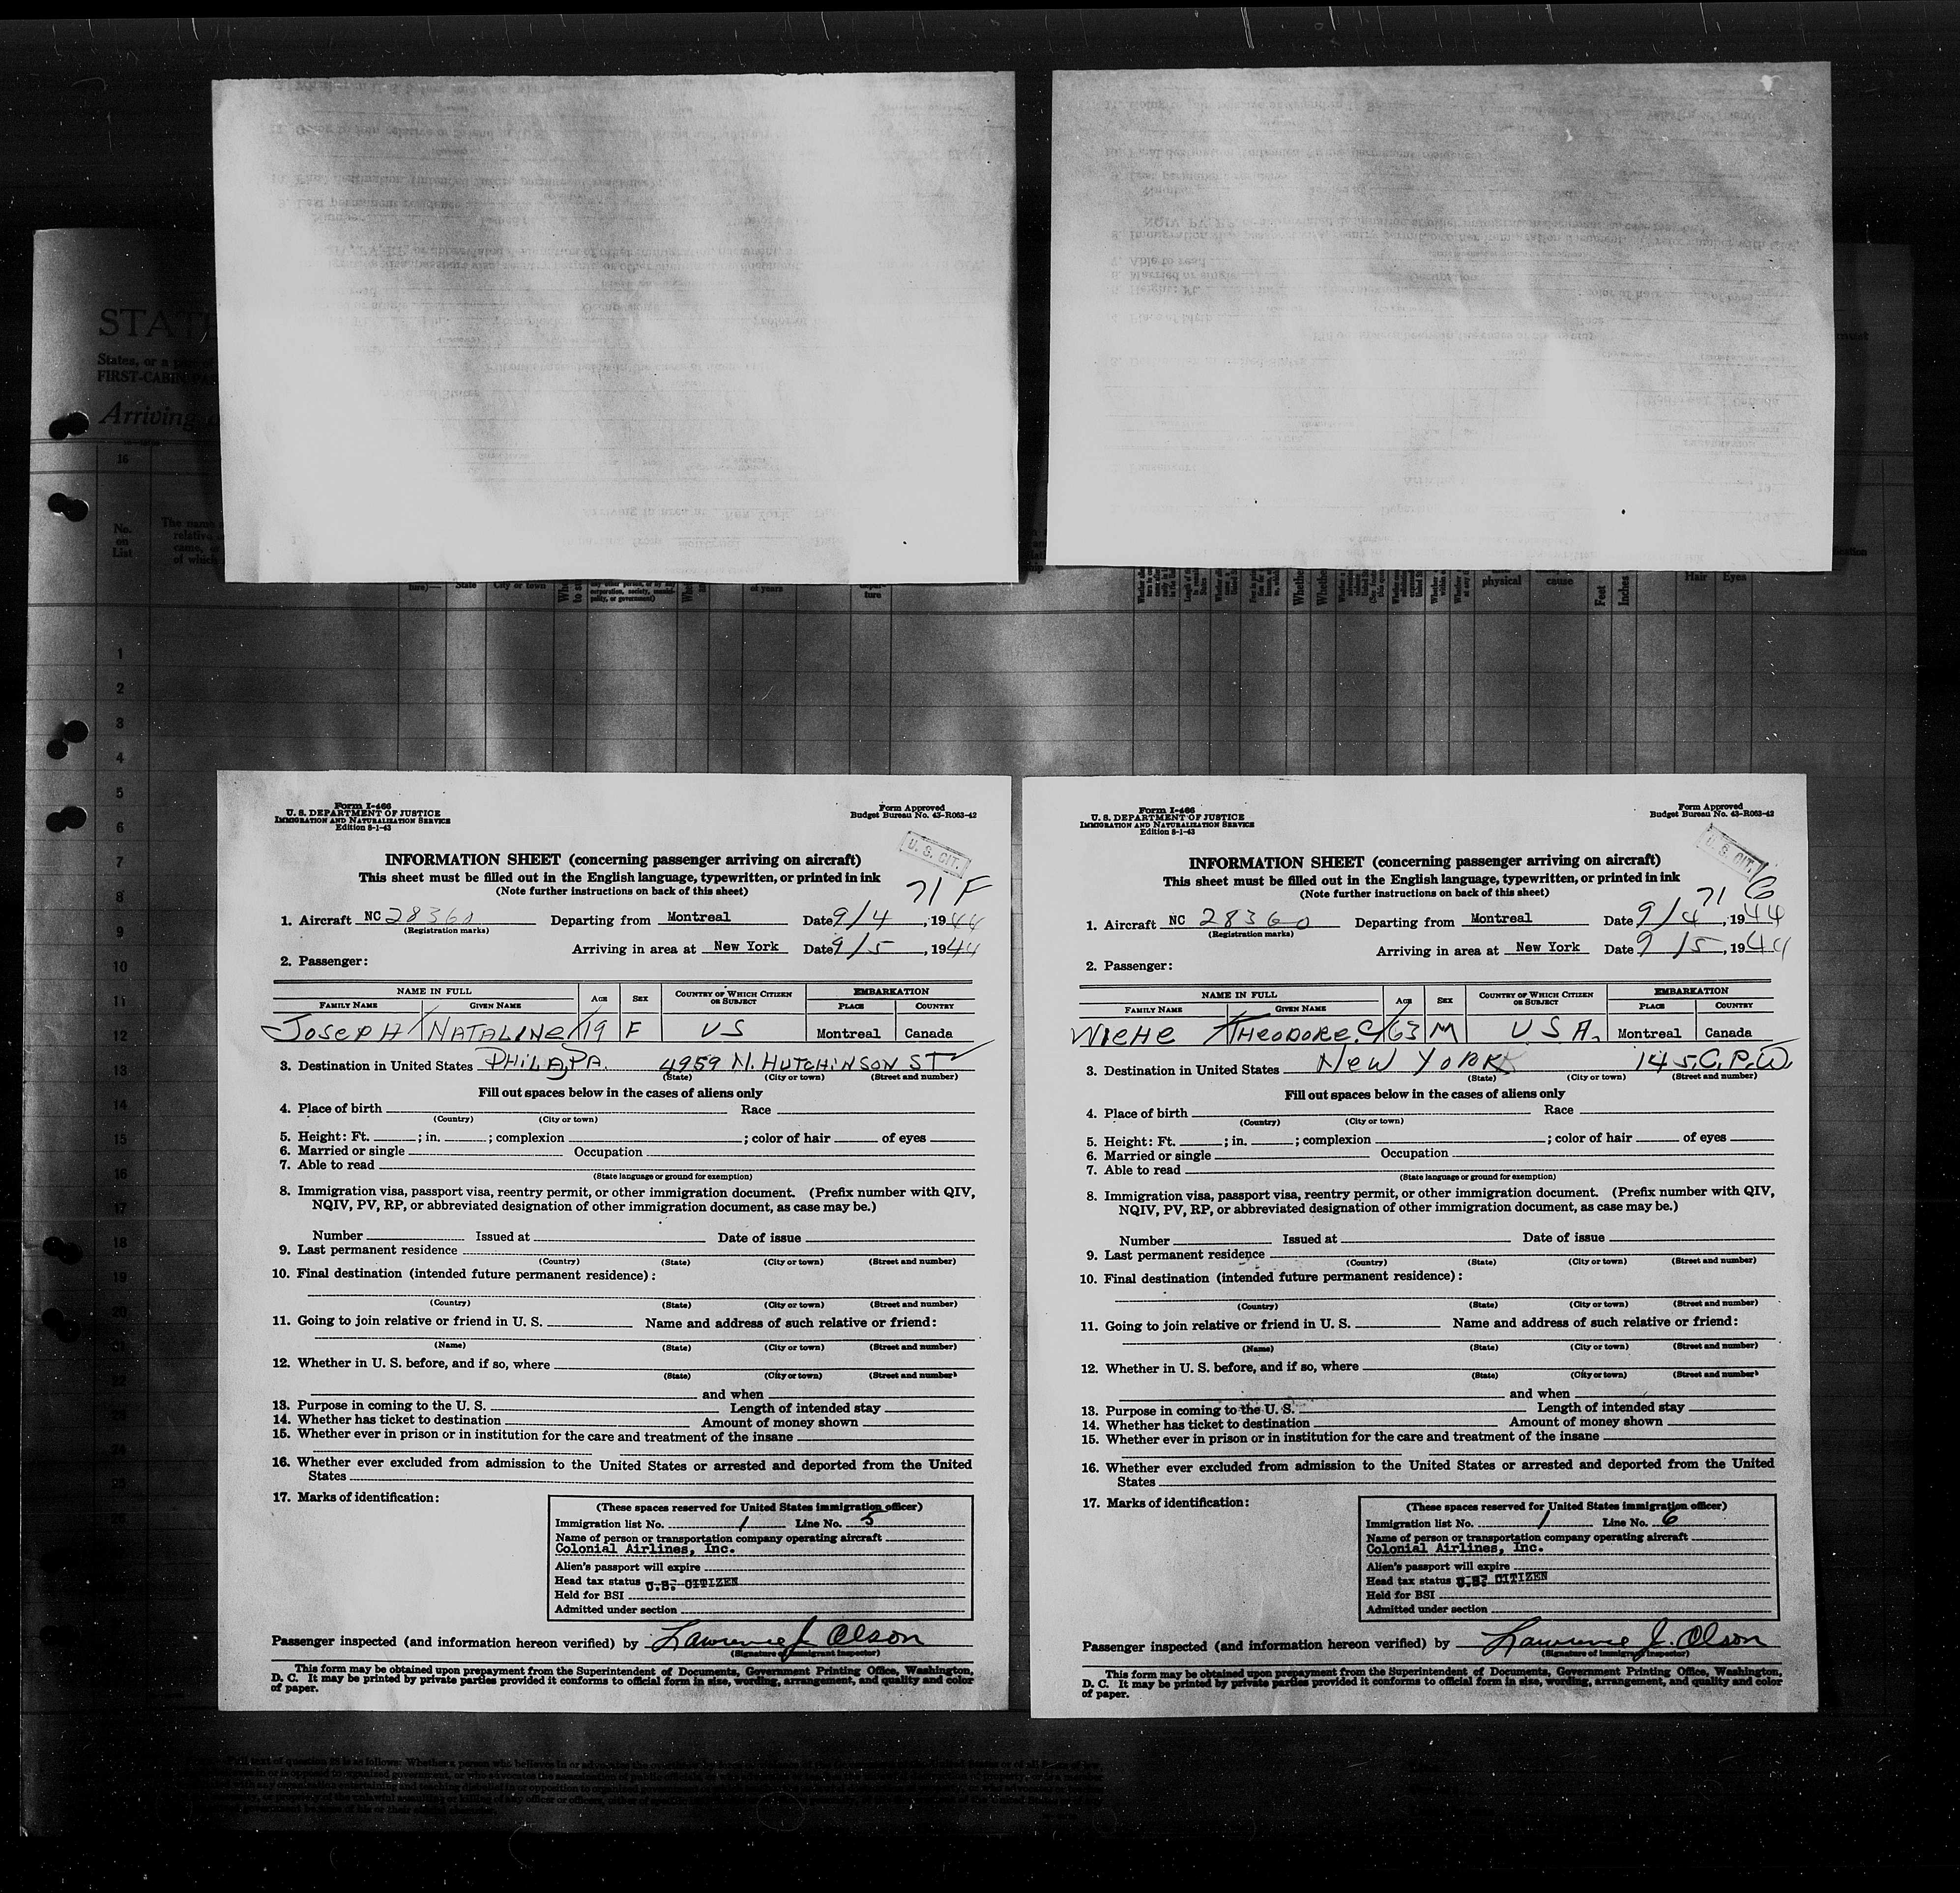 STAT
States, or a
FIRST-CABIN PA
Arriving
16
No.
on
List
The name
relative
came, or
of which
ture)—
State
City or town
of years
ture
physical
cause
Feet
Inches
Hair
Eyes
1
2
3
4
5
6
7
8
9
10
11
12
13
14
15
16
17
18
19
20
Form I-466
U. S. DEPARTMENT OF JUSTICE
IMMIGRATION AND NATURALIZATION SERVICE
Edition 8-1-43
Form Approved
Budget Bureau No. 43-R063-42
U. S. CIT.
INFORMATION SHEET (concerning passenger arriving on aircraft)
This sheet must be filled out in the English language, typewritten, or printed in ink
(Note further instructions on back of this sheet)
71 F
1. Aircraft NC 28360 Departing from Montreal Date 9/4, 1944
(Registration marks)
Arriving in area at New York Date 9/5, 1944
2. Passenger:
NAME IN FULL AGE SEX COUNTRY OF WHICH CITIZEN OR SUBJECT EMBARKATION
FAMILY NAME GIVEN NAME PLACE COUNTRY
JOSEPH NATALINE 19 F US Montreal Canada
3. Destination in United States PHILA, PA. 4959 N. HUTCHINSON ST
(State) (City or town) (Street and number)
Fill out spaces below in the cases of aliens only
4. Place of birth Race
(Country) (City or town)
5. Height: Ft. ; in. ; complexion ; color of hair of eyes
6. Married or single Occupation
7. Able to read
(State language or ground for exemption)
8. Immigration visa, passport visa, reentry permit, or other immigration document. (Prefix number with QIV,
NQIV, PV, RP, or abbreviated designation of other immigration document, as case may be.)
Number Issued at Date of issue
9. Last permanent residence
(Country) (State) (City or town) (Street and number)
10. Final destination (intended future permanent residence):
(Country) (State) (City or town) (Street and number)
11. Going to join relative or friend in U. S. Name and address of such relative or friend:
(Name) (State) (City or town) (Street and number)
12. Whether in U. S. before, and if so, where
(State) (City or town) (Street and number)
and when
13. Purpose in coming to the U. S. Length of intended stay
14. Whether has ticket to destination Amount of money shown
15. Whether ever in prison or in institution for the care and treatment of the insane
16. Whether ever excluded from admission to the United States or arrested and deported from the United
States
17. Marks of identification:
(These spaces reserved for United States immigration officer)
Immigration list No. 1 Line No. 5
Name of person or transportation company operating aircraft
Colonial Airlines, Inc.
Alien's passport will expire
Head tax status U.S. CITIZEN
Held for BSI
Admitted under section
Passenger inspected (and information hereon verified) by Lawrence J. Olson
(Signature of immigrant inspector)
This form may be obtained upon prepayment from the Superintendent of Documents, Government Printing Office, Washington,
D. C. It may be printed by private parties provided it conforms to official form in size, wording, arrangement, and quality and color
of paper.
Form I-466
U. S. DEPARTMENT OF JUSTICE
IMMIGRATION AND NATURALIZATION SERVICE
Edition 8-1-43
Form Approved
Budget Bureau No. 43-R063-42
U. S. CIT.
INFORMATION SHEET (concerning passenger arriving on aircraft)
This sheet must be filled out in the English language, typewritten, or printed in ink
(Note further instructions on back of this sheet)
71 G
1. Aircraft NC 28360 Departing from Montreal Date 9/4, 1944
(Registration marks)
Arriving in area at New York Date 9/5, 1944
2. Passenger:
NAME IN FULL AGE SEX COUNTRY OF WHICH CITIZEN OR SUBJECT EMBARKATION
FAMILY NAME GIVEN NAME PLACE COUNTRY
WIEHE THEODORE. C 63 M U S A. Montreal Canada
3. Destination in United States NEW YORK 145. C. P. W.
(State) (City or town) (Street and number)
Fill out spaces below in the cases of aliens only
4. Place of birth Race
(Country) (City or town)
5. Height: Ft. ; in. ; complexion ; color of hair of eyes
6. Married or single Occupation
7. Able to read
(State language or ground for exemption)
8. Immigration visa, passport visa, reentry permit, or other immigration document. (Prefix number with QIV,
NQIV, PV, RP, or abbreviated designation of other immigration document, as case may be.)
Number Issued at Date of issue
9. Last permanent residence
(Country) (State) (City or town) (Street and number)
10. Final destination (intended future permanent residence):
(Country) (State) (City or town) (Street and number)
11. Going to join relative or friend in U. S. Name and address of such relative or friend:
(Name) (State) (City or town) (Street and number)
12. Whether in U. S. before, and if so, where
(State) (City or town) (Street and number)
and when
13. Purpose in coming to the U. S. Length of intended stay
14. Whether has ticket to destination Amount of money shown
15. Whether ever in prison or in institution for the care and treatment of the insane
16. Whether ever excluded from admission to the United States or arrested and deported from the United
States
17. Marks of identification:
(These spaces reserved for United States immigration officer)
Immigration list No. 1 Line No. 6
Name of person or transportation company operating aircraft
Colonial Airlines, Inc.
Alien's passport will expire
Head tax status U.S. CITIZEN
Held for BSI
Admitted under section
Passenger inspected (and information hereon verified) by Lawrence J. Olson
(Signature of immigrant inspector)
This form may be obtained upon prepayment from the Superintendent of Documents, Government Printing Office, Washington,
D. C. It may be printed by private parties provided it conforms to official form in size, wording, arrangement, and quality and color
of paper.